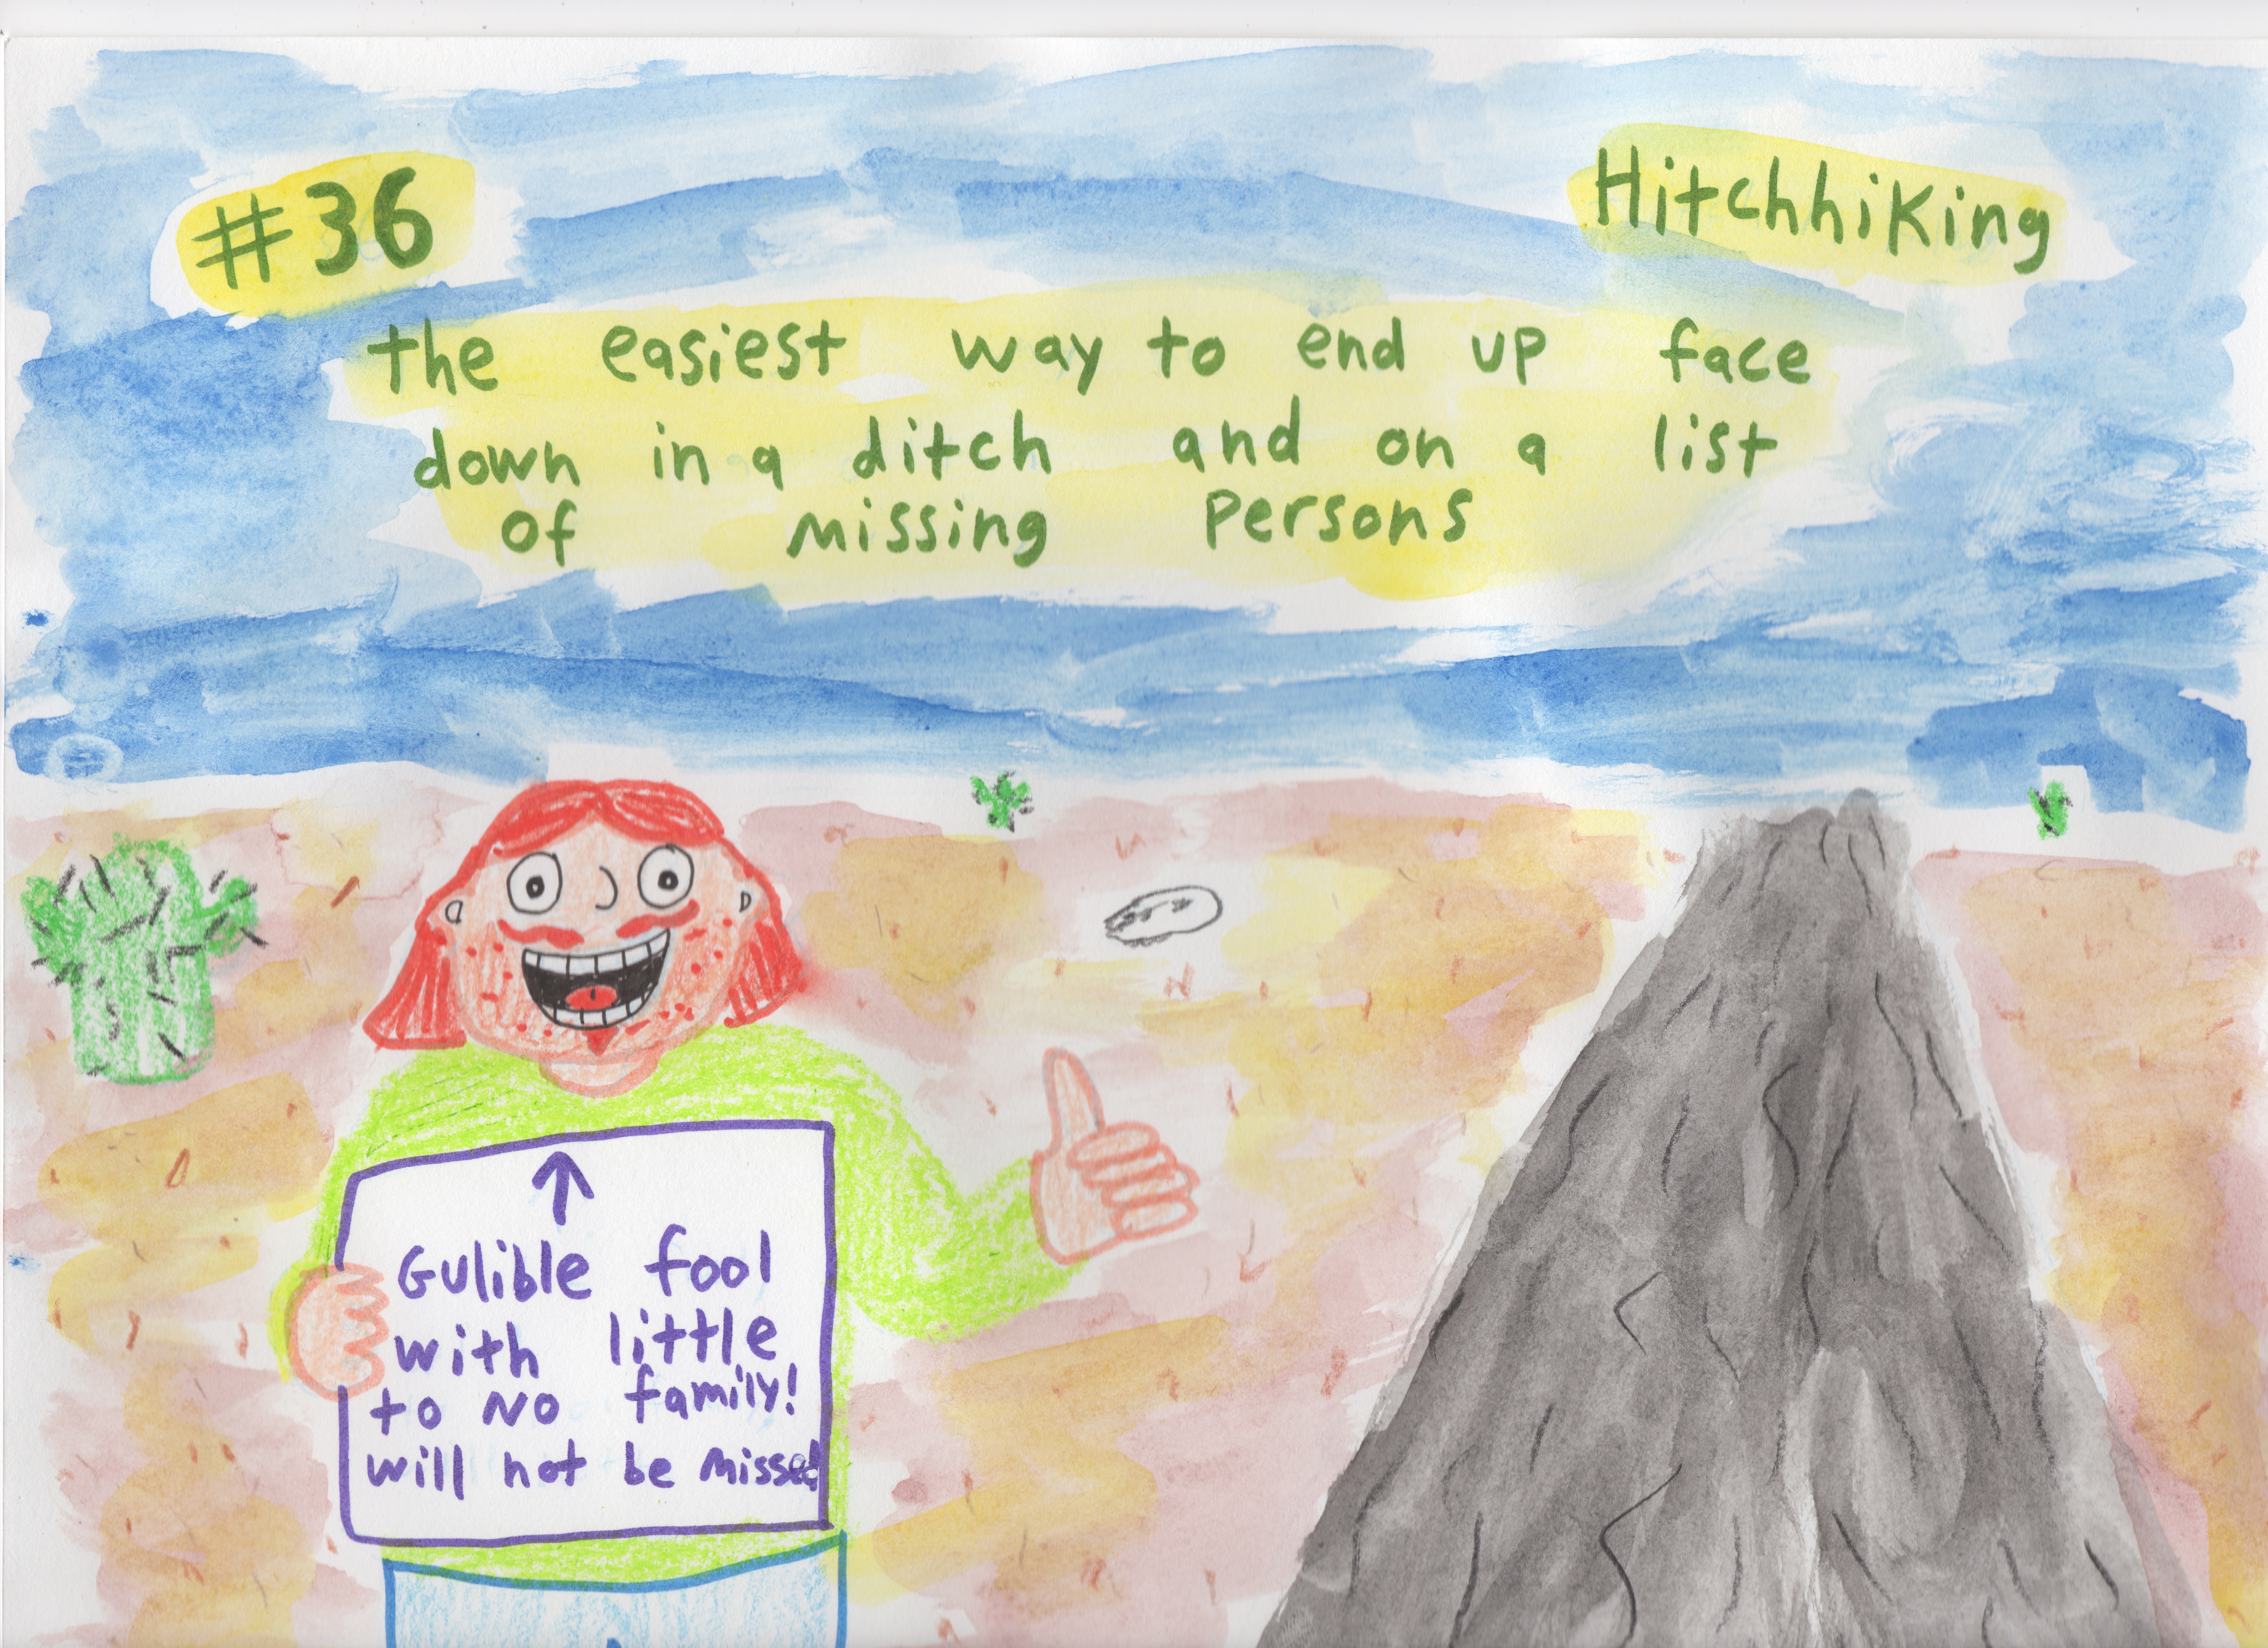 #36
Hitchhiking
the easiest way to end up face
down in a ditch and on a list
of missing persons
↑
Gulible fool
with little
to No family!
will not be missed